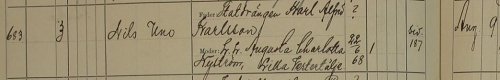 Fader: Stalldrängen Karl Alfred ?
683 3 Nils Uno Karlsson
Moder: Augusta Charlotta 22/6 68 1 187 Aug 9
Nyström, Lilla Vestertälje